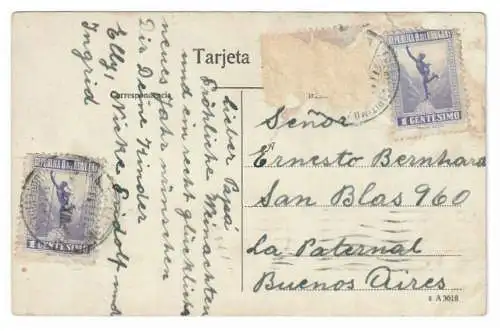 Tarjeta
Correspondencia
Lieber Papá
Fröhliche Weinachten
und ein recht glückliches
neues Jahr wünschen
Dir Deine Kinder
Elly, Mieke Rudolf und
Ingrid
Señor
Ernesto Bernhard
San Blas 960
La Paternal
Buenos Aires
REPUBLICA O. DEL URUGUAY
1 CENTESIMO
REPUBLICA O. DEL URUGUAY
1 CENTESIMO
A 3618